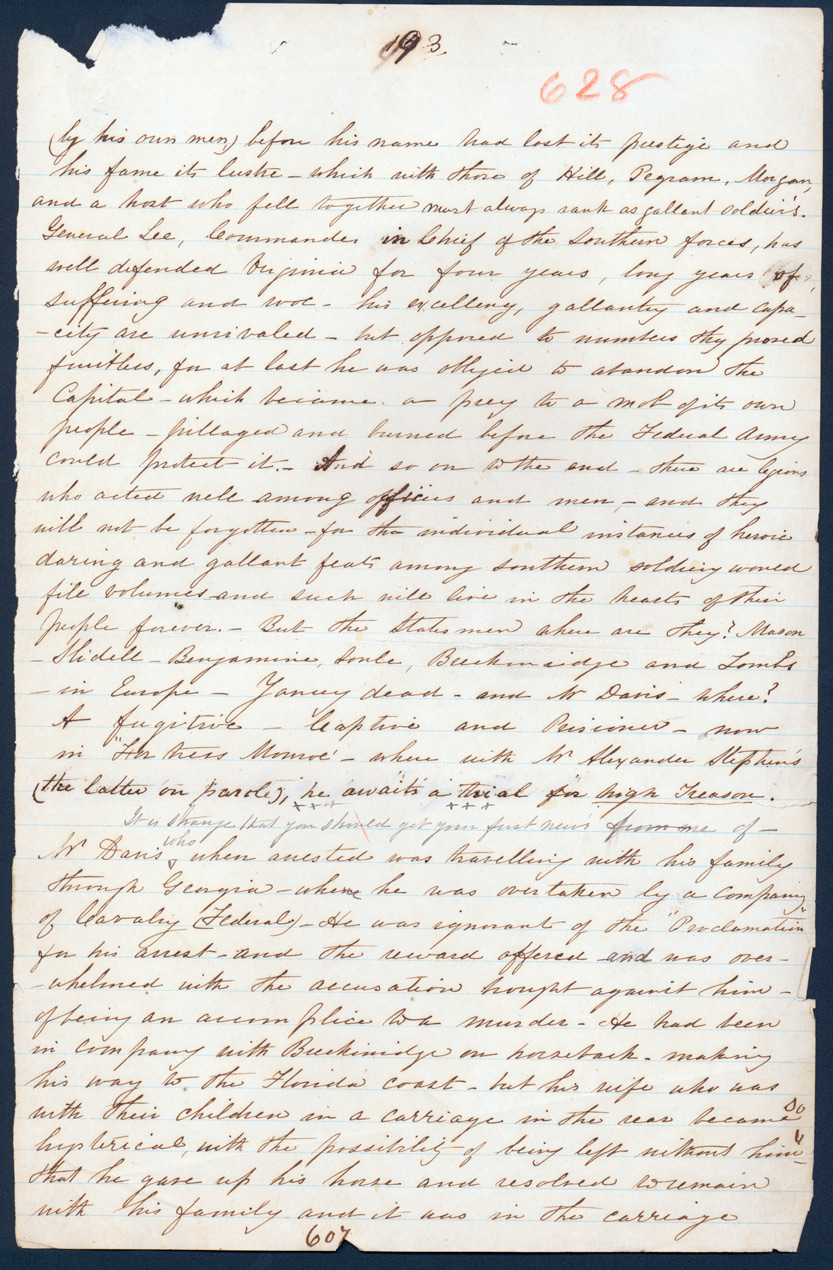 193
628
(by his own men) before his name had lost its prestige and
his fame its lustre - which with those of Hill, Pegram, Morgan,
and a host who fell together must always rank as gallant soldiers.
General Lee, Commander in Chief of the Southern forces, has
well defended Virginia for four years, long years of
suffering and woe - his excellency, gallantry and capa-
-city are unrivaled - but opposed to numbers they proved
fruitless, for at last he was obliged to abandon the
Capital - which became a prey to a mob of its own
people - pillaged and burned before the Federal Army
could protect it. - And so on to the end - there are legions
who acted well among officers and men - and they
will not be forgotten - for the individual instances of heroic
daring and gallant feats among southern soldiery would
file volumes and such will live in the hearts of their
people forever. - But the Statesmen where are they? Mason
- Slidell - Benjamine, Soule, Breckinridge and Tombs
- in Europe - Yancey dead - and Mr Davis - where?
A fugitive - Captive and Prisioner - now
in "Fortress Monroe" - where with Mr Alexander Stephen's
(the latter on parole), he awaits a trial for high Treason.
It is strange that you should get your first news from me of -
who
Mr Davis when arrested was travelling with his family
through Georgia - where he was overtaken by a company
of Cavalry (Federal) - He was ignorant of the "Proclamation"
for his arrest - and the reward offered and was over-
-whelmed with the accusation brought against him -
of being an accomplice to a murder - He had been
in company with Breckinridge on horseback - making
his way to the Florida coast - but his wife who was
with their children in a carriage in the rear became so
hysterical, with the possibility of being left without him -
that he gave up his horse and resolved to remain
with his family and it was in the carriage
607